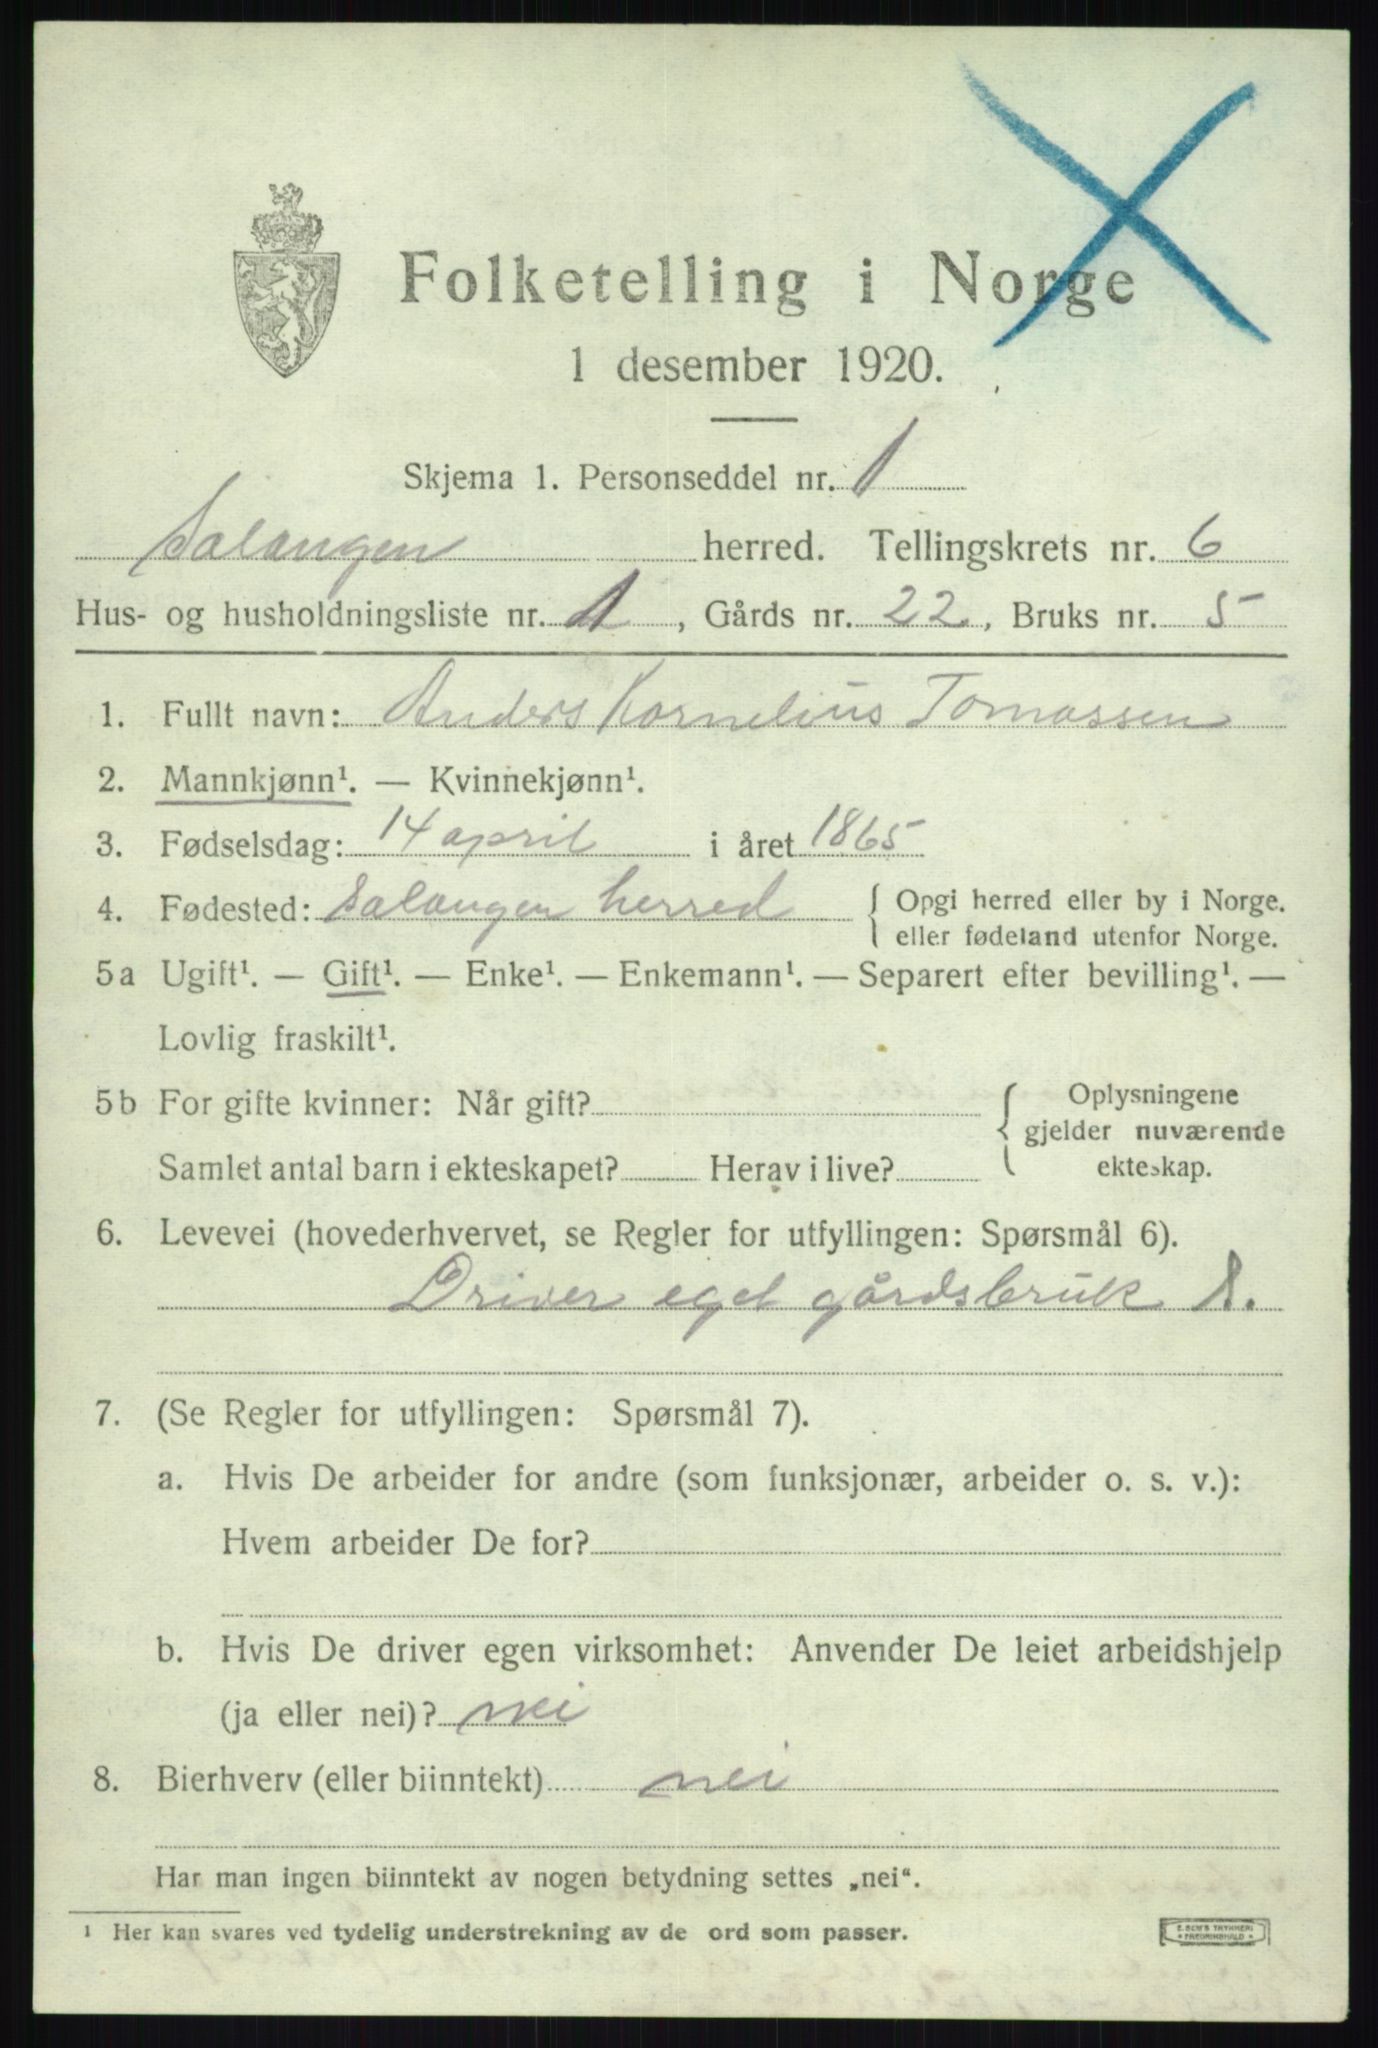 Folketelling i Norge
1 desember 1920.
Skjema 1. Personseddel nr. 1
Salangen herred. Tellingskrets nr. 6
Hus- og husholdningsliste nr. 1, Gårds nr. 22, Bruks nr. 5
1. Fullt navn: Anders Kornelius Tomassen
2. Mannkjønn¹. — Kvinnekjønn¹.
3. Fødselsdag: 14 april i året 1865
4. Fødested: Salangen herred { Opgi herred eller by i Norge.
eller fødeland utenfor Norge.
5a Ugift¹. — Gift¹. — Enke¹. — Enkemann¹. — Separert efter bevilling¹. —
Lovlig fraskilt¹.
5b For gifte kvinner: Når gift? { Oplysningene
gjelder nuværende
Samlet antal barn i ekteskapet? Herav i live? ekteskap.
6. Levevei (hovederhvervet, se Regler for utfyllingen: Spørsmål 6).
Driver eget gårdsbruk S.
7. (Se Regler for utfyllingen: Spørsmål 7).
a. Hvis De arbeider for andre (som funksjonær, arbeider o. s. v.):
Hvem arbeider De for?
b. Hvis De driver egen virksomhet: Anvender De leiet arbeidshjelp
(ja eller nei)? nei
8. Bierhverv (eller biinntekt) nei
Har man ingen biinntekt av nogen betydning settes „nei“.
¹ Her kan svares ved tydelig understrekning av de ord som passer.
E. SEM'S TRYKKERI
FREDRIKSHALD